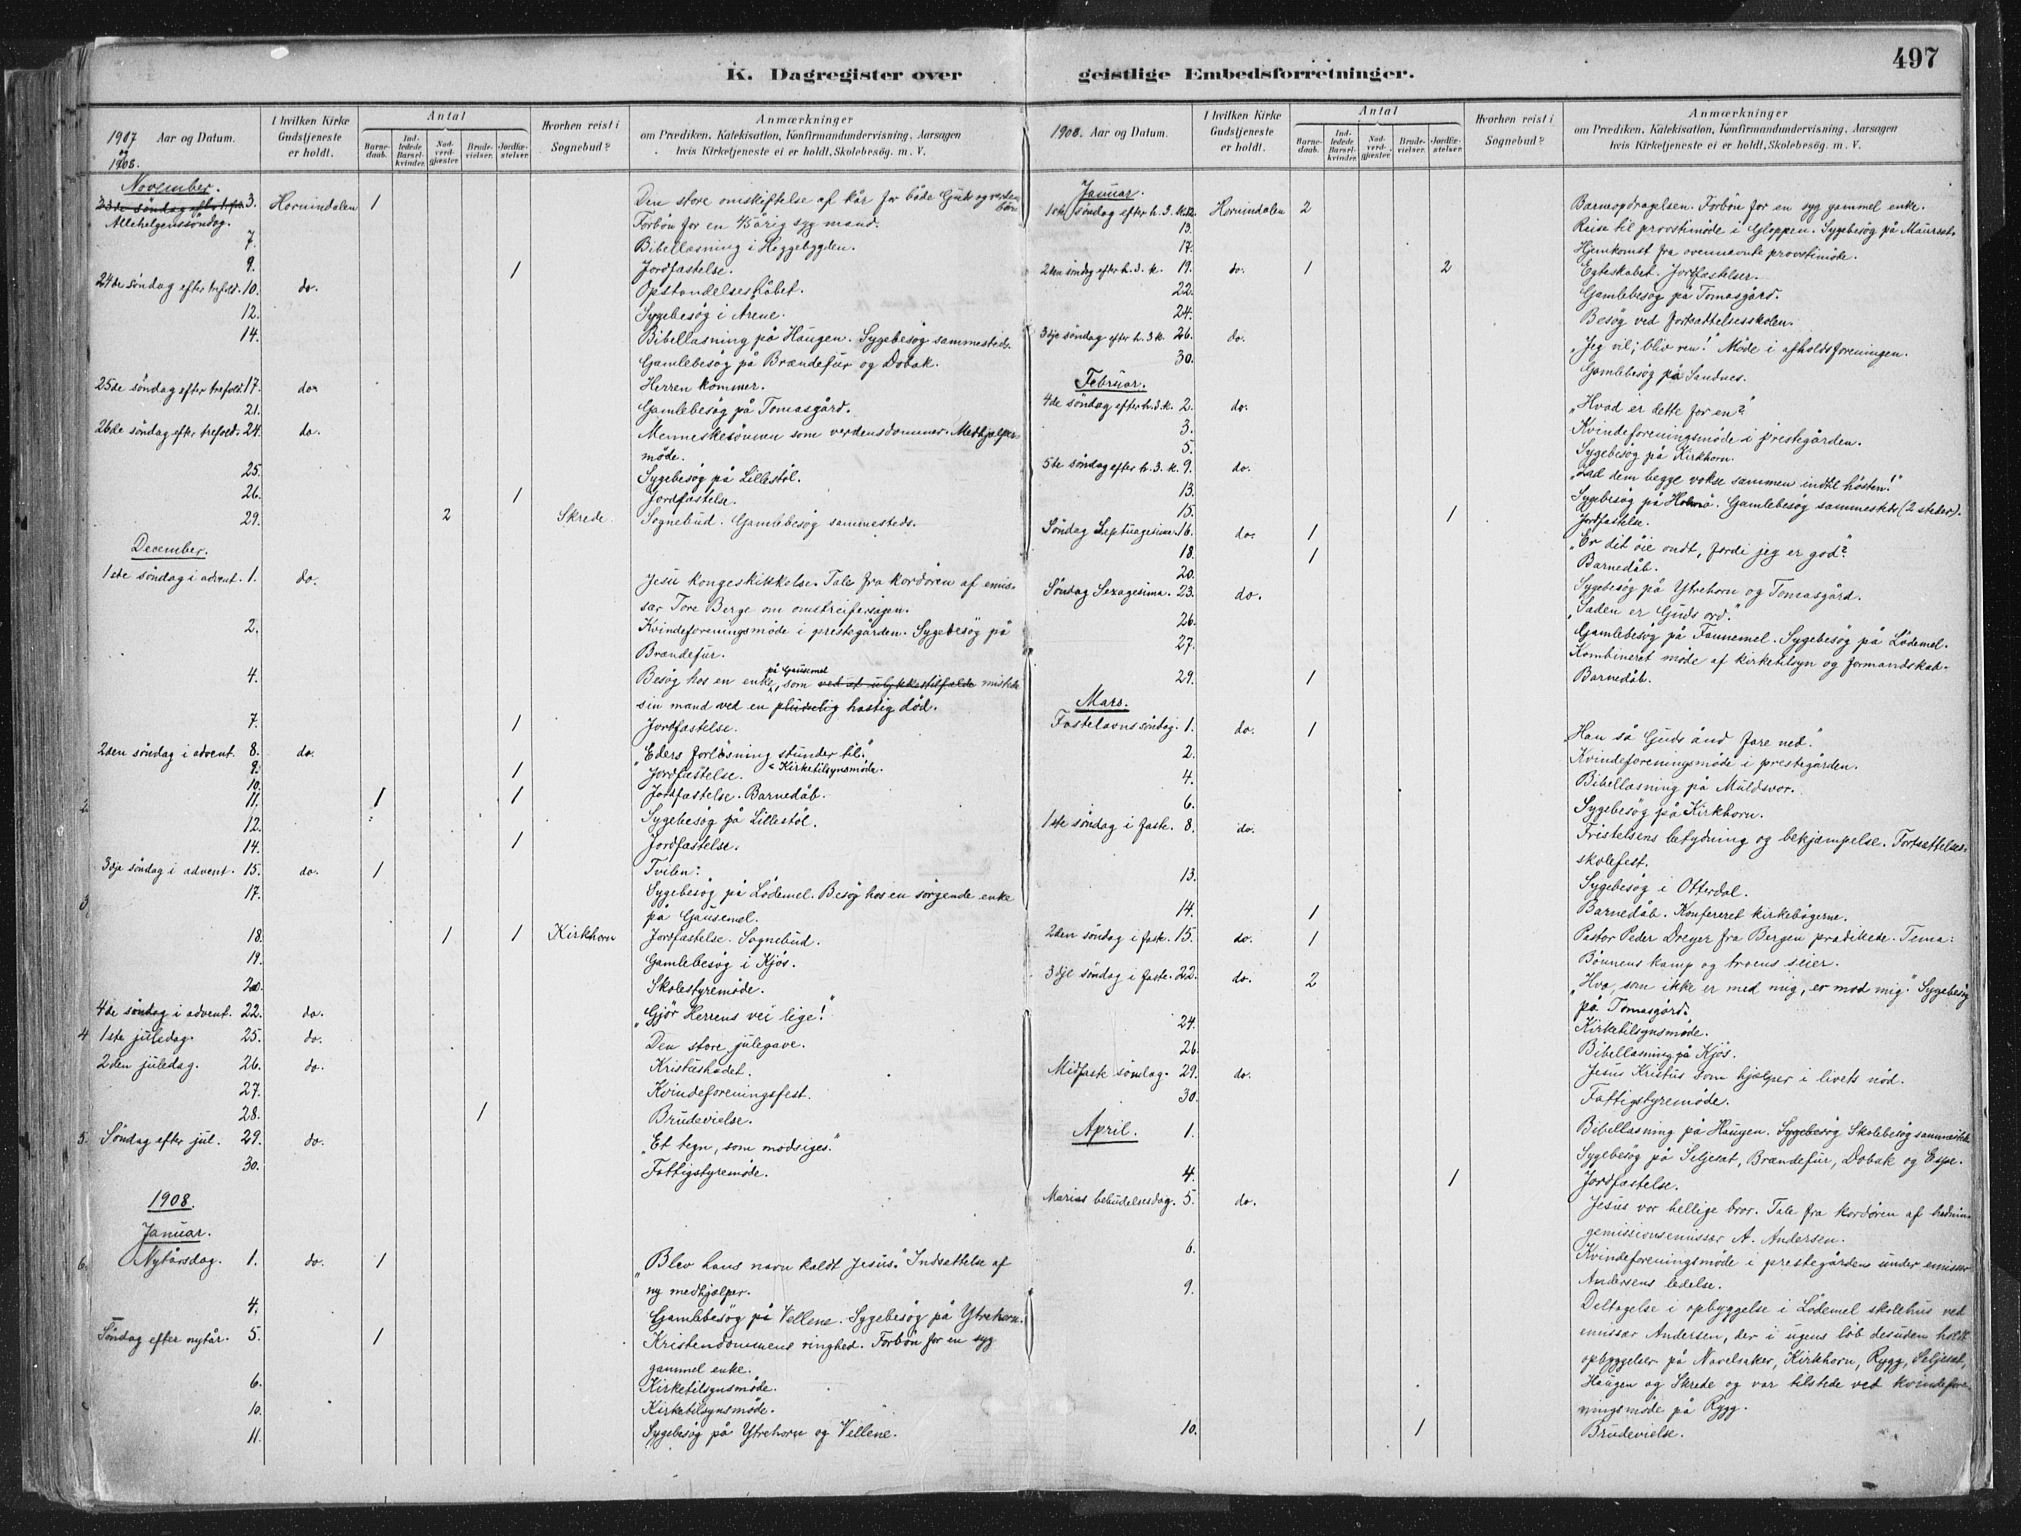 497
K. Dagregister over geistlige Embedsforretninger.
1907 og 1908. Aar og Datum.
I hvilken Kirke Gudstjeneste er holdt.
Antal
Barnedaab. Indledede Barselkvinder. Nadverdgjester. Brudevielser. Jordfæstelser.
Hvorhen reist i Sognebud?
Anmærkninger
om Prædiken, Katekisation, Konfirmandundervisning, Aarsagen
hvis Kirketjeneste ei er holdt, Skolebesøg. m. V.
November.
23de søndag efter tref. 3. Hornindalen 1 Den store omskiftelse af kår for både Guds og verdens børn
Allehelgenssøndag. Forbøn for en 45 årig syg mand.
7. Bibellæsning i Heggebygden.
9. 1 Jordfæstelse.
24de søndag efter trefold. 10. do. Opstandelseshåbet.
12. Sygebesøg i Arene.
14. Bibellæsning på Haugen. Sygebesøg sammesteds.
Gamlebesøg på Brændefur og Dobak.
25de søndag efter trefold. 17. do. Herren kommer.
21. Gamlebesøg på Tomasgård.
26de søndag efter trefold. 24. do. Menneskesønnen som verdensdommer. Medhjælper-
møde.
25. Sygebesøg på Lillestøl.
26. 1 Jordfæstelse.
29. 2 Skrede. Sognebud. Gamlebesøg sammesteds.
December.
1ste søndag i advent. 1. do. Jesu kongeskikkelse. Tale fra kordøren af emis-
sær Tore Berge om omstreifersagen.
2. Kvindeforeningsmøde i prestegården. Sygebesøg på
Brændefur.
4. Besøg hos en enke på Gausemel, som ved et ulykkestilfælde mistede
sin mand ved en pludselig hastig død.
7. 1 Jordfæstelse.
2den søndag i advent. 8. do. "Eders forløsning stunder til."
9. 1 Jordfæstelse. Kirketilsynsmøde.
10.
11. 1 1 Jordfæstelse. Barnedåb.
12. Sygebesøg på Lillestøl.
14. 1 Jordfæstelse.
3dje søndag i advent. 15. do. 1 Tvilen:
17. Sygebesøg på Lødemel. Besøg hos en sørgende enke
på Gausemel.
18. 1 1 Kirkhorn Jordfæstelse. Sognebud.
19. Gamlebesøg i Kjøs.
20. Skolestyremøde.
4de søndag i advent. 22. do. "Gjør Herrens vei lige!"
4 1ste juledag. 25. do. Den store julegave.
2den juledag. 26. do. Kristushadet.
27. Kvindeforeningsfest.
28. 1 Brudevielse.
5. Søndag efter jul. 29. do. "Et tegn, som modsiges."
30. Fattigstyremøde.
1908.
Januar.
6. Nytårsdag. 1. do. 1 "Blev hans navn kaldt Jesus." Indsættelse af
ny medhjælper.
4. Gamlebesøg på Vellene. Sygebesøg på Ytrehorn.
Søndag efter nytår. 5. 1 Kristendommens ringhed. Forbøn for en syg
gammel enke.
6. Kirketilsynsmøde.
10. Kirketilsynsmøde.
11. Sygebesøg på Ytrehorn og Vellene.
1908. Aar og Datum.
I hvilken Kirke Gudstjeneste er holdt.
Antal
Barnedaab. Indledede Barselkvinder. Nadverdgjester. Brudevielser. Jordfæstelser.
Hvorhen reist i Sognebud?
Anmærkninger
om Prædiken, Katekisation, Konfirmandundervisning, Aarsagen
hvis Kirketjeneste ei er holdt, Skolebesøg. m. V.
Januar.
1ste søndag efter h. 3. k. 12. Hornindalen 2 Barneopdragelsen. Forbøn for en syg gammel enke.
13. Reise til provstimøde i Gloppen. Sygebesøg på Maurset.
17. Hjemkomst fra ovennævnte provstimøde.
2den søndag efter h. 3. k. 19. do. 1 2 Egteskabet. Jordfæstelser.
22. Gamlebesøg på Tomasgård.
24. Besøg ved fortsættelsesskolen.
3dje søndag efter h. 3 k. 26. do. "Jeg vil; bliv ren!" Møde i afholdsforeningen.
30. Gamlebesøg på Sandnes.
Februar.
4de søndag efter h. 3. k. 2. do. "Hvad er dette for en?"
3. Kvindeforeningsmøde i prestegården.
5. Sygebesøg på Kirkhorn.
5te søndag efter h. 3. k. 9. do. "Lad dem begge vokse sammen indtil høsten!"
13. Sygebesøg på Holmø. Gamlebesøg sammesteds (2 steder).
15. 1 Jordfæstelse.
Søndag Septuagesima. 16. do. 1 "Er dit øie ondt, fordi jeg er god?"
18. 1 Barnedåb.
20. Sygebesøg på Ytrehorn og Tomasgård.
Søndag Sexagesima. 23. do. "Sæden er Guds ord."
26. Gamlebesøg på Fannemel. Sygebesøg på Lødemel.
27. Kombineret møde af kirketilsyn og formandskab.
29. 1 Barnedåb.
Mars.
Fastelavnssøndag. 1. do. 1 "Han så Guds ånd fare ned."
2. Kvindeforeningsmøde i prestegården.
4. Bibellæsning på Muldsvor.
6. Sygebesøg på Kirkhorn.
1ste søndag i faste. 8. do. Fristelsens betydning og bekjæmpelse. Fortsættelses-
skolefest.
13. Sygebesøg i Otterdal.
14. 1 Barnedåb. Konfereret kirkebøgerne.
2den søndag i faste. 15. do. 1 Pastor Peder Dreyer fra Bergen prædikede. Tema:
Bønnens kamp og troens seier.
3dje søndag i faste. 22. do. 2 "Hvo, som ikke er med mig, er mod mig." Sygebesøg
på Tomasgård.
24. Kirketilsynsmøde.
26. Bibellæsning på Kjøs.
Midfaste søndag. 29. do. Jesus Kristus som hjælper i livets nød.
30. Fattigstyremøde.
April. 1. Bibellæsning på Haugen. Sygebesøg Skolebesøg sammesteds.
Sygebesøg på Seljeset, Brændefur, Dobak og Espe.
4. 1 Jordfæstelse.
Mariæ bebudelsesdag. 5. do. Jesus vor hellige bror. Tale fra kordøren af hednin-
gemissionsemissær A. Andersen.
6. Kvindeforeningsmøde i prestegården under emissær
Andersens ledelse.
9. Deltagelse i opbyggelse i Lødemel skolehus ved
emissær Andersen, der i ugens løb desuden holdt
opbyggelser på Navelsaker, Kirkhorn, Rygg, Seljeset,
Haugen og Skrede og var tilstede ved kvindefore-
ningsmøde på Rygg.
10. 1 Brudevielse.